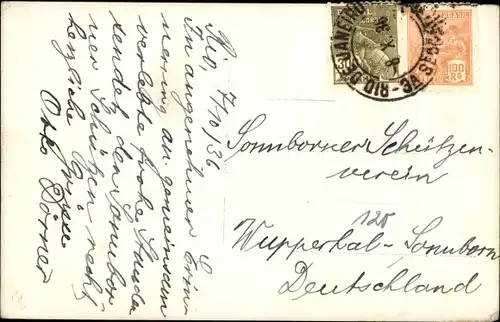 Rio, 7/10/36
In angenehmer Erin-
nerung an gemeinsam
verlebte frohe Stunden
sendet den Sonnbor-
ner Schützen recht
herzliche Grüsse
Otto Dörner
RIO DE JANEIRO
8 X 36
BRASIL
100
RS
300
Sonnborner Schützen-
verein
120
Wuppertal-Sonnborn
Deutschland